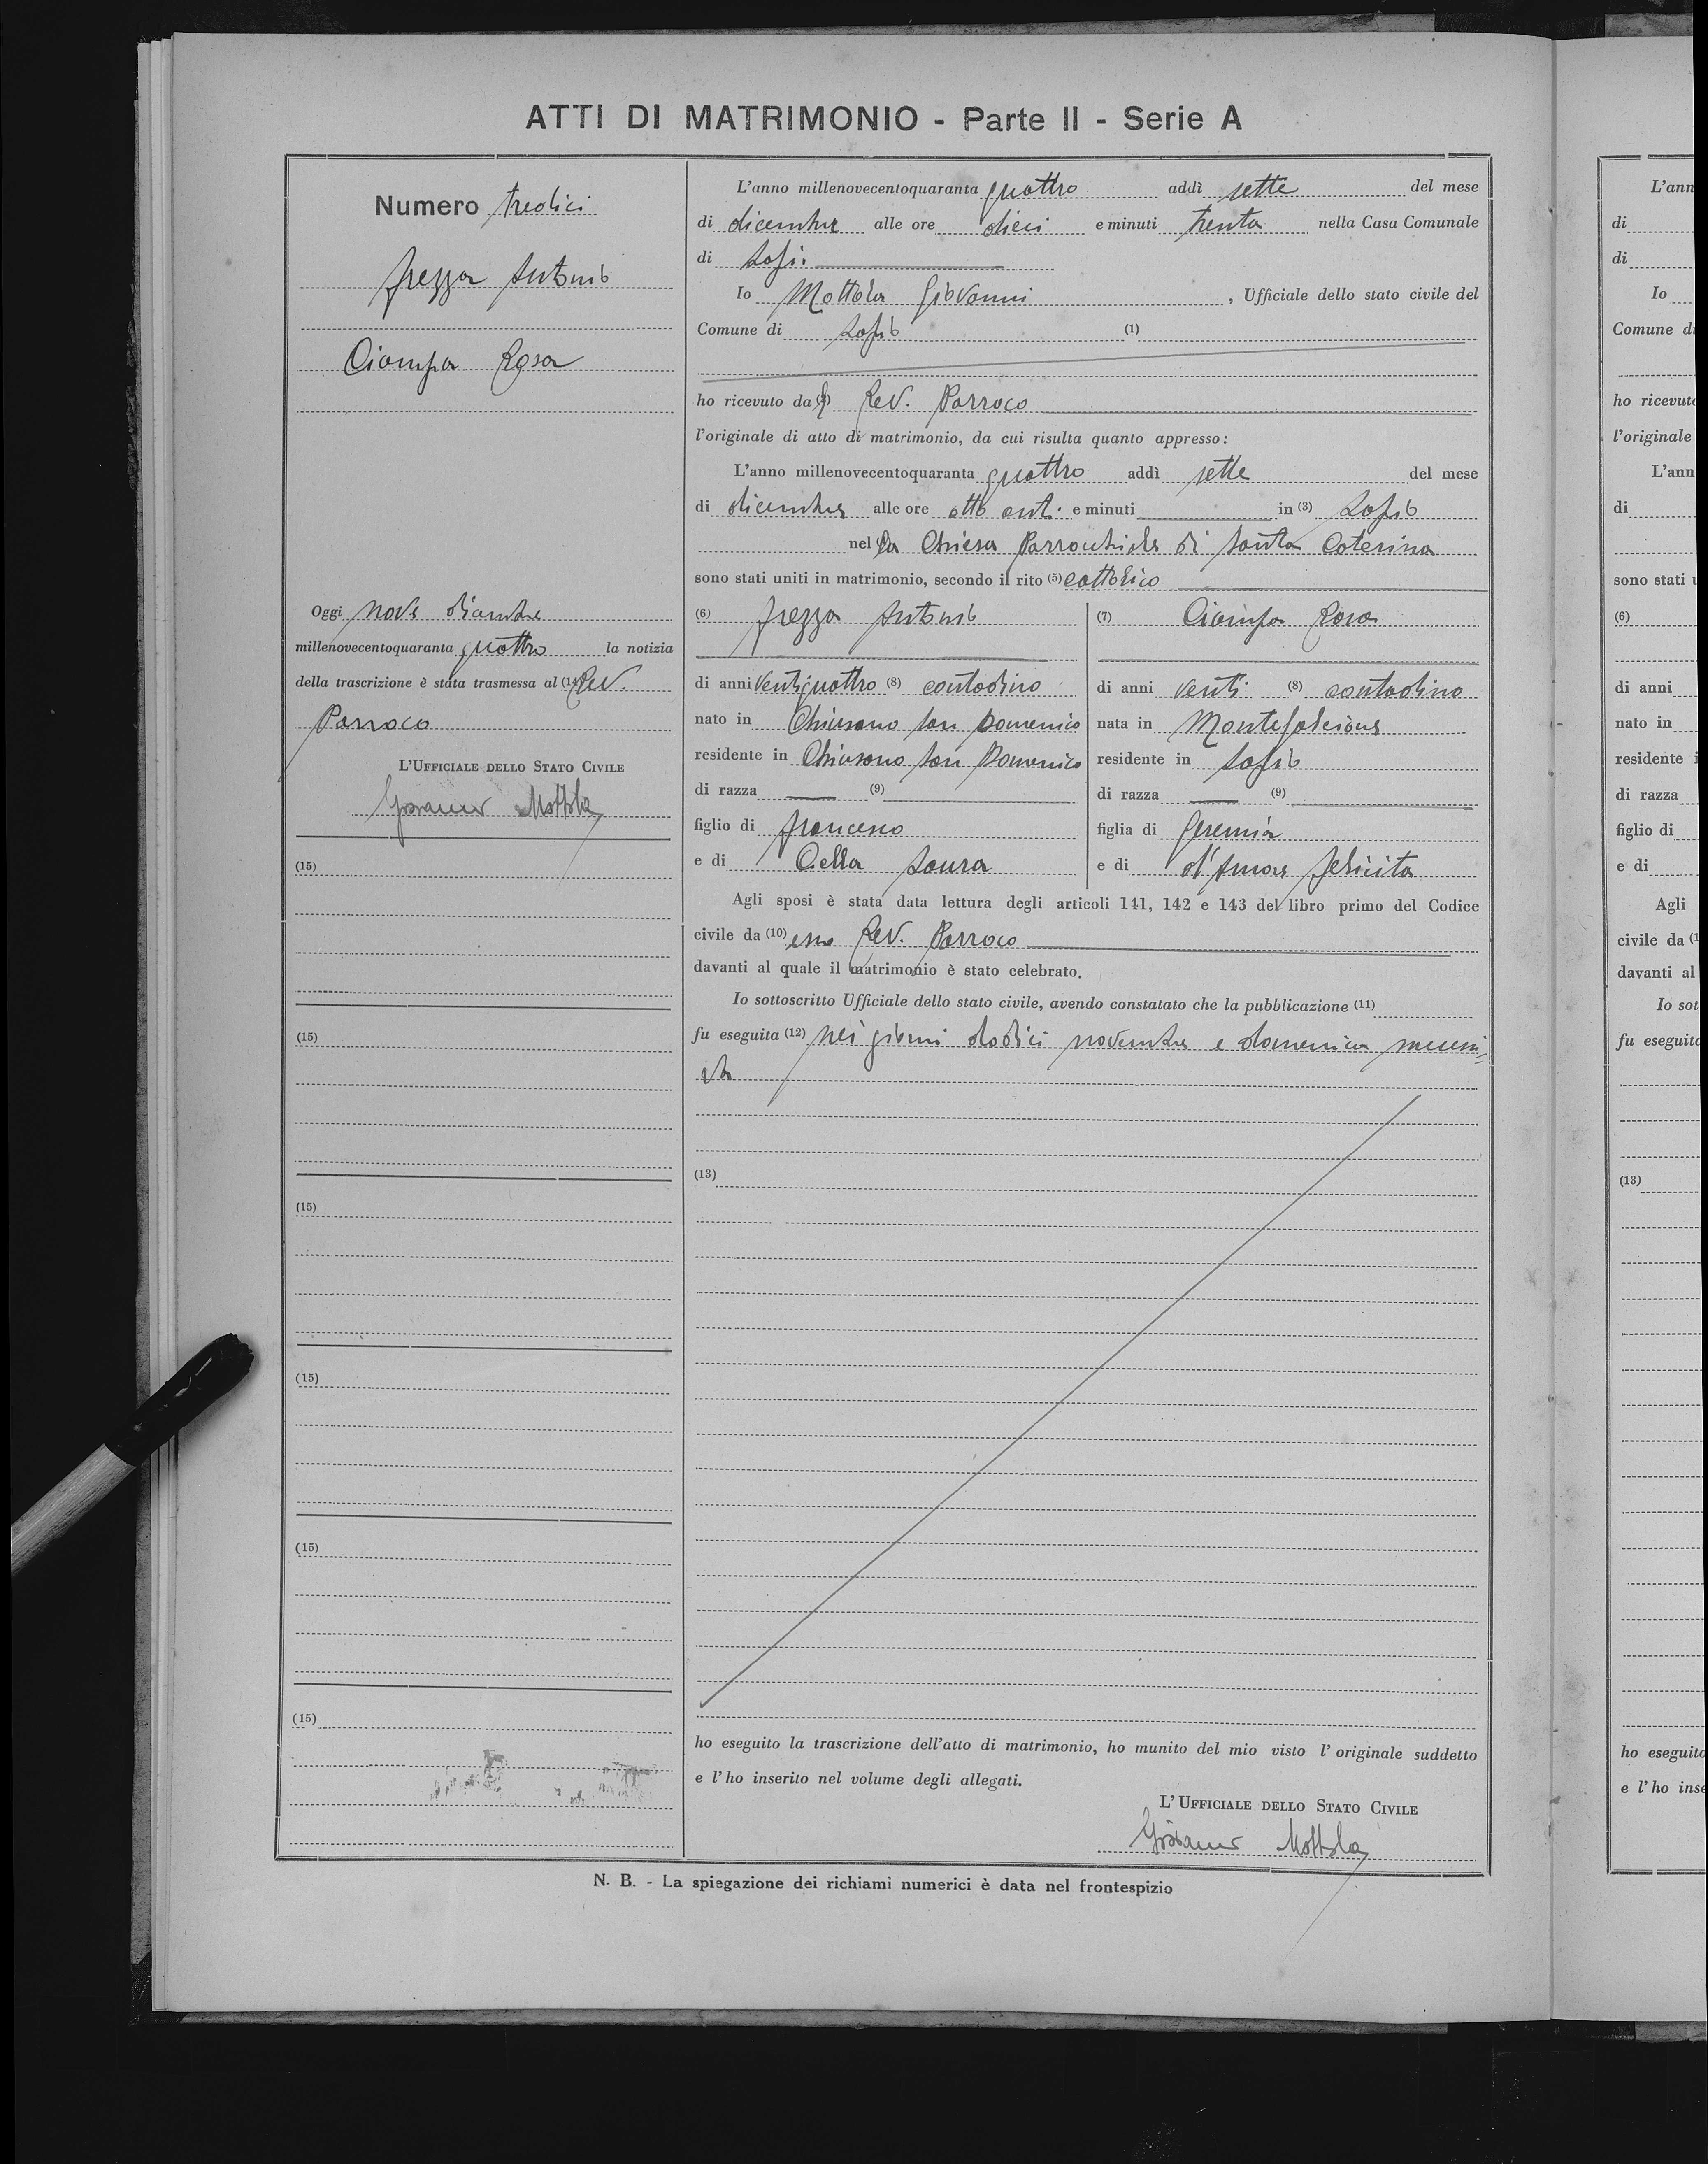 ATTI DI MATRIMONIO - Parte II - Serie A
Numero tredici
Frezza Antonio
Ciampa Rosa
Oggi nove dicembre
millenovecentoquaranta quattro la notizia
della trascrizione è stata trasmessa al (14) Rev.
Parroco
L'UFFICIALE DELLO STATO CIVILE
Giovanni Mottola
(15)
(15)
(15)
(15)
(15)
(15)
L'anno millenovecentoquaranta quattro addì sette del mese
di dicembre alle ore dieci e minuti trenta nella Casa Comunale
di
Io Mottola Giovanni , Ufficiale dello stato civile del
Comune di Lapio (1)
ho ricevuto da(2) Rev. Parroco
l'originale di atto di matrimonio, da cui risulta quanto appresso:
L'anno millenovecentoquaranta quattro addì sette del mese
di dicembre alle ore otto ant. e minuti in (3) Lapio
nella Chiesa Parrocchiale di Santa Caterina
sono stati uniti in matrimonio, secondo il rito (5) cattolico
(6) Frezza Antonio
di anni ventiquattro (8) contadino
nato in Chiusano San Domenico
residente in Chiusano San Domenico
di razza (9)
figlio di Francesco
e di Cella Laura
(7) Ciampa Rosa
di anni venti (8) contadina
nata in Montefalcione
residente in Lapio
di razza (9)
figlia di Geremia
e di d'Amore Felicita
Agli sposi è stata data lettura degli articoli 141, 142 e 143 del libro primo del Codice
civile da (10) esso Rev. Parroco
davanti al quale il matrimonio è stato celebrato.
Io sottoscritto Ufficiale dello stato civile, avendo constatato che la pubblicazione (11)
fu eseguita (12) nei giorni dodici novembre e domenica
(13)
ho eseguito la trascrizione dell'atto di matrimonio, ho munito del mio visto l'originale suddetto
e l'ho inserito nel volume degli allegati.
L'UFFICIALE DELLO STATO CIVILE
Giovanni Mottola
N. B. - La spiegazione dei richiami numerici è data nel frontespizio
L'ann
di
di
Io
Comune di
ho ricevuto
l'originale
L'ann
di
sono stati u
(6)
di anni
nato in
residente i
di razza
figlio di
e di
Agli
civile da (1
davanti al
Io sot
fu eseguita
(13)
ho eseguito
e l'ho inse